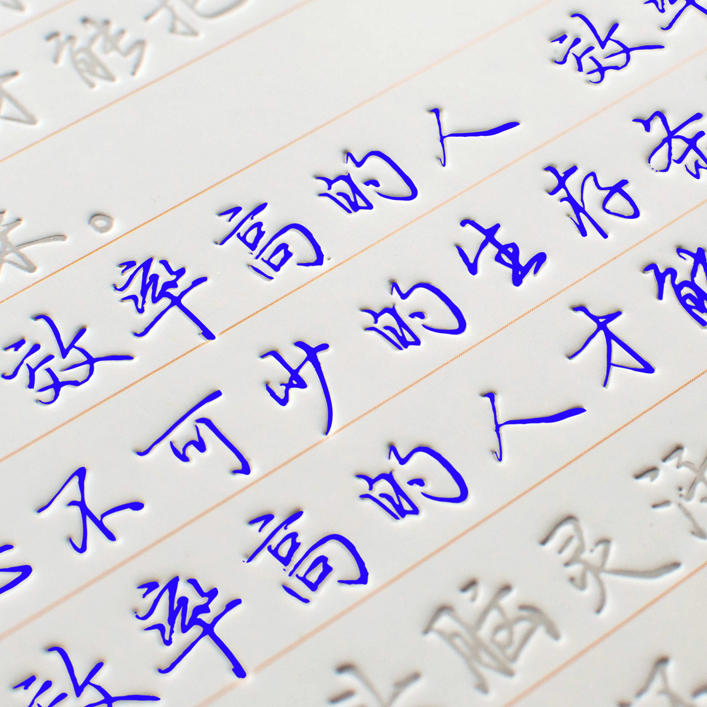 才能把
来。
效率高的人效率
不可少的生存
效率高的人才能
脑灵活